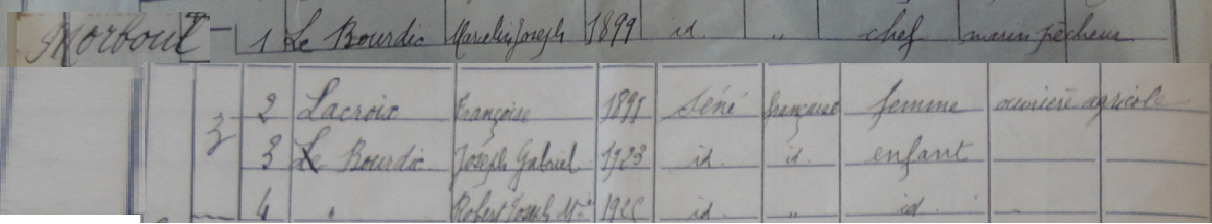 Morboul 1 Le Bourdic Marcelin Joseph 1899 id. " chef marin pêcheur
2 Lacroix Françoise 1895 Séné française femme ouvrière agricole
3 3 Le Bourdic Joseph Gabriel 1923 id id. enfant
4 " Robert Joseph Mie 1925 id. " id.